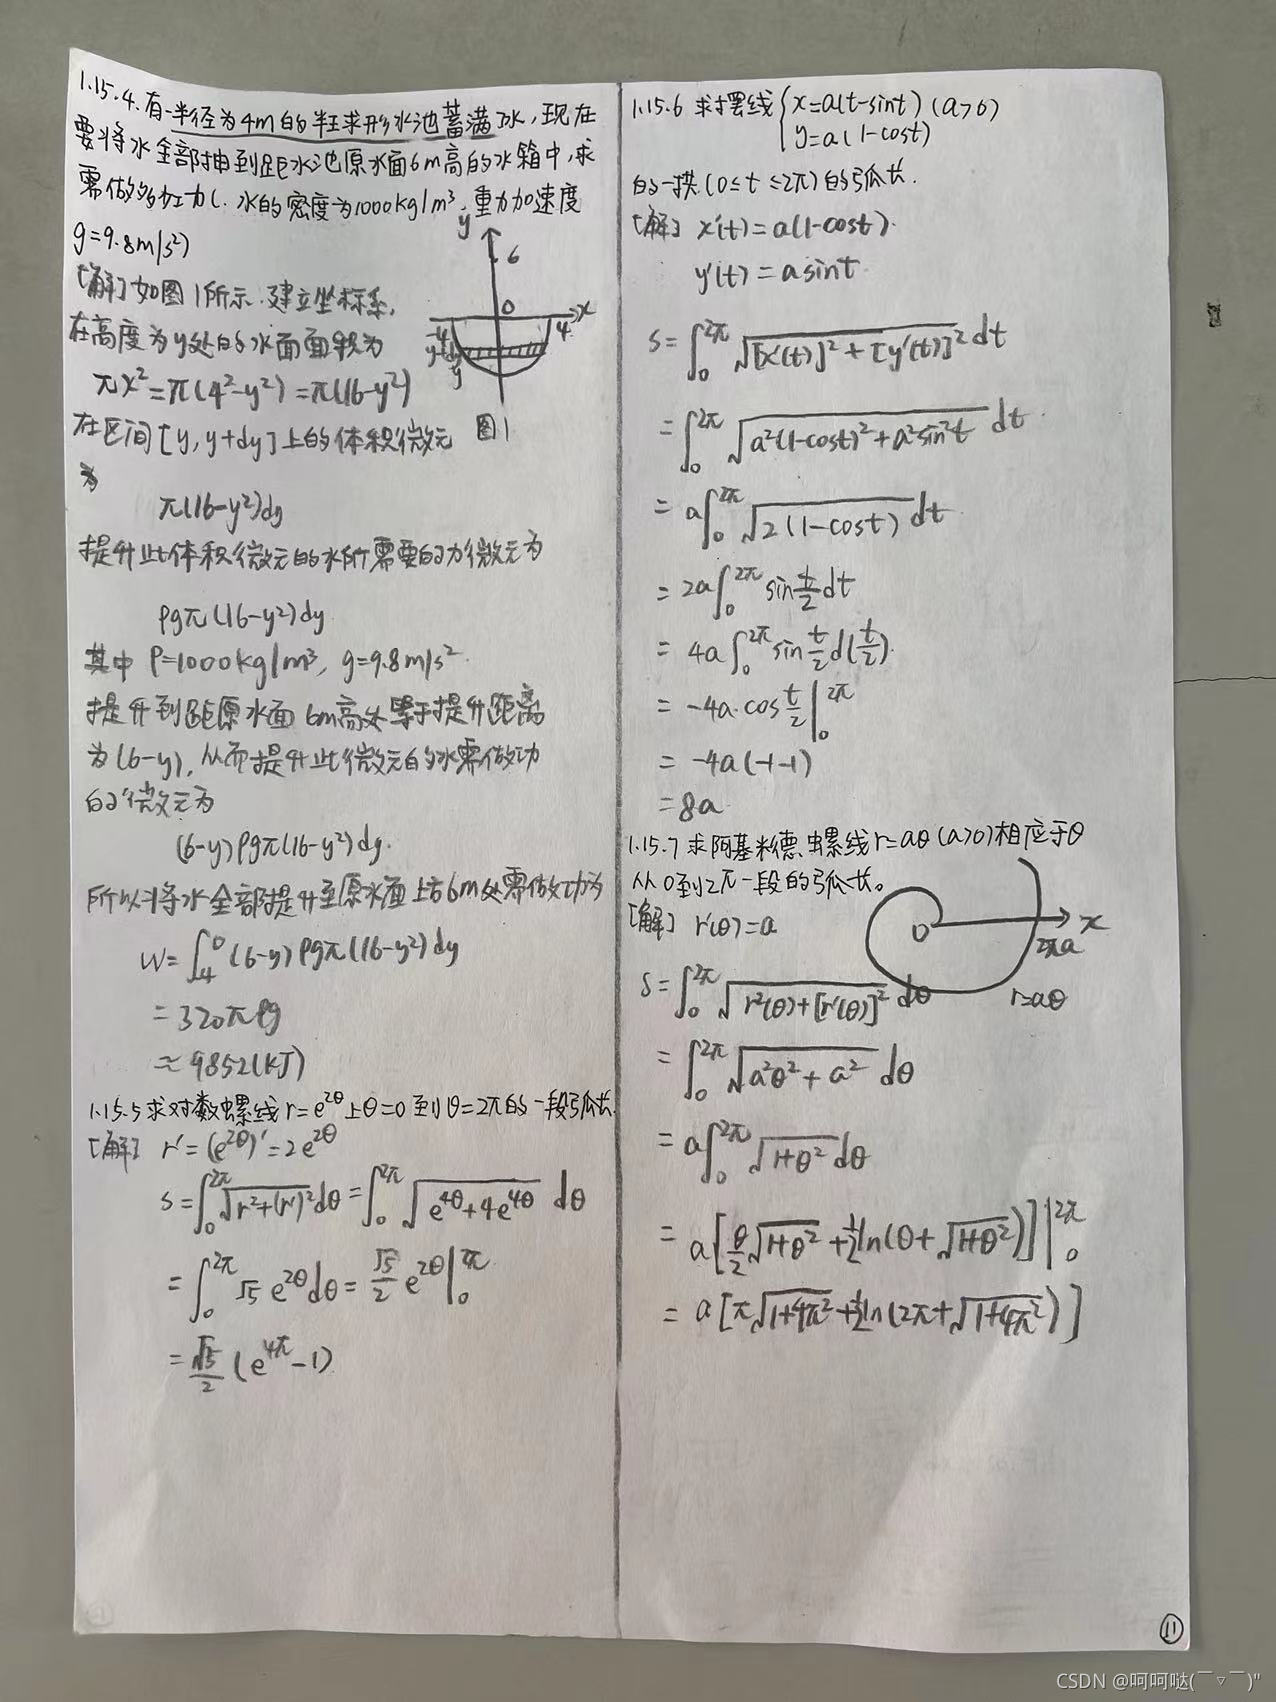 1.15.4.有一半径为4m的半球形水池蓄满了水,现在
要将水全部抽到距水池原水面6m高的水箱中,求
需做多少功(.水的密度为1000kg/m³,重力加速度
g=9.8m/s²)
[解]如图1所示.建立坐标系,
在高度为y处的水面面积为
πx²=π(4²-y²)=π(16-y²)
在区间[y,y+dy]上的体积微元
为
π(16-y²)dy
提升此体积微元的水所需要的力微元为
ρgπ(16-y²)dy
其中 ρ=1000kg/m³, g=9.8m/s².
提升到距原水面6m高处等于提升距离
为(6-y),从而提升此微元的水需做功
的微元为
(6-y)ρgπ(16-y²)dy.
所以将水全部提升至原水面上方6m处需做功为
W=∫₄⁰(6-y)ρgπ(16-y²)dy
=320πρg
≈9852(KJ)
y
6
0
x
-4
4
y+dy
y
图1
1.15.5求对数螺线r=e^{2θ}上θ=0到θ=2π的一段弧长.
[解] r'=(e^{2θ})'=2e^{2θ}
S=∫₀^{2π}√(r²+(r')²)dθ=∫₀^{2π}√(e^{4θ}+4e^{4θ}) dθ
=∫₀^{2π}√5 e^{2θ}dθ=√5/2 e^{2θ}|₀^{2π}
=√5/2(e^{4π}-1)
1.15.6 求摆线{x=a(t-sint) (a>0)
y=a(1-cost)
的一拱(0≤t≤2π)的弧长.
[解] x'(t)=a(1-cost).
y'(t)=asint.
S=∫₀^{2π}√([x'(t)]²+[y'(t)]²)dt
=∫₀^{2π}√(a²(1-cost)²+a²sin²t) dt
=a∫₀^{2π}√(2(1-cost))dt
=2a∫₀^{2π}sin t/2 dt
=4a∫₀^{2π}sin t/2 d(t/2).
=-4a.cos t/2|₀^{2π}
=-4a(-1-1)
=8a.
1.15.7求阿基米德螺线r=aθ(a>0)相应于θ
从0到2π一段的弧长。
[解] r'(θ)=a
0
x
2πa
r=aθ
S=∫₀^{2π}√(r²(θ)+[r'(θ)]²) dθ
=∫₀^{2π}√(a²θ²+a²) dθ
=a∫₀^{2π}√(1+θ²)dθ
=a[θ/2√(1+θ²)+1/2ln(θ+√(1+θ²))]|₀^{2π}
=a[π√(1+4π²)+1/2ln(2π+√(1+4π²))]
11
CSDN @呵呵哒(￣▽￣)"